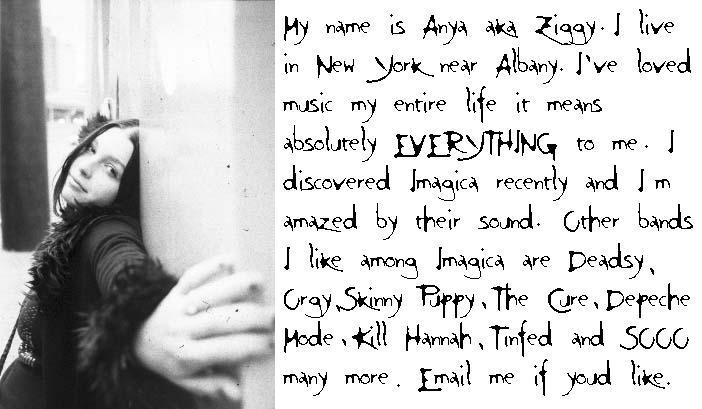 My name is Anya aka Ziggy. I live
in New York near Albany. I've loved
music my entire life it means
absolutely EVERYTHING to me. I
discovered Imagica recently and I m
amazed by their sound. Other bands
I like among Imagica are Deadsy,
Orgy, Skinny Puppy, The Cure, Depeche
Mode, Kill Hannah, Tinfed and SOOO
many more. Email me if youd like.